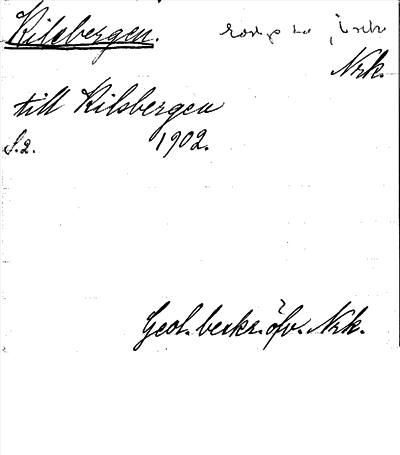 Kilsbergen.
Nrk.
till Kilsbergen
S. 2. 1902.
Geol. beskr. öfv. Nrk.